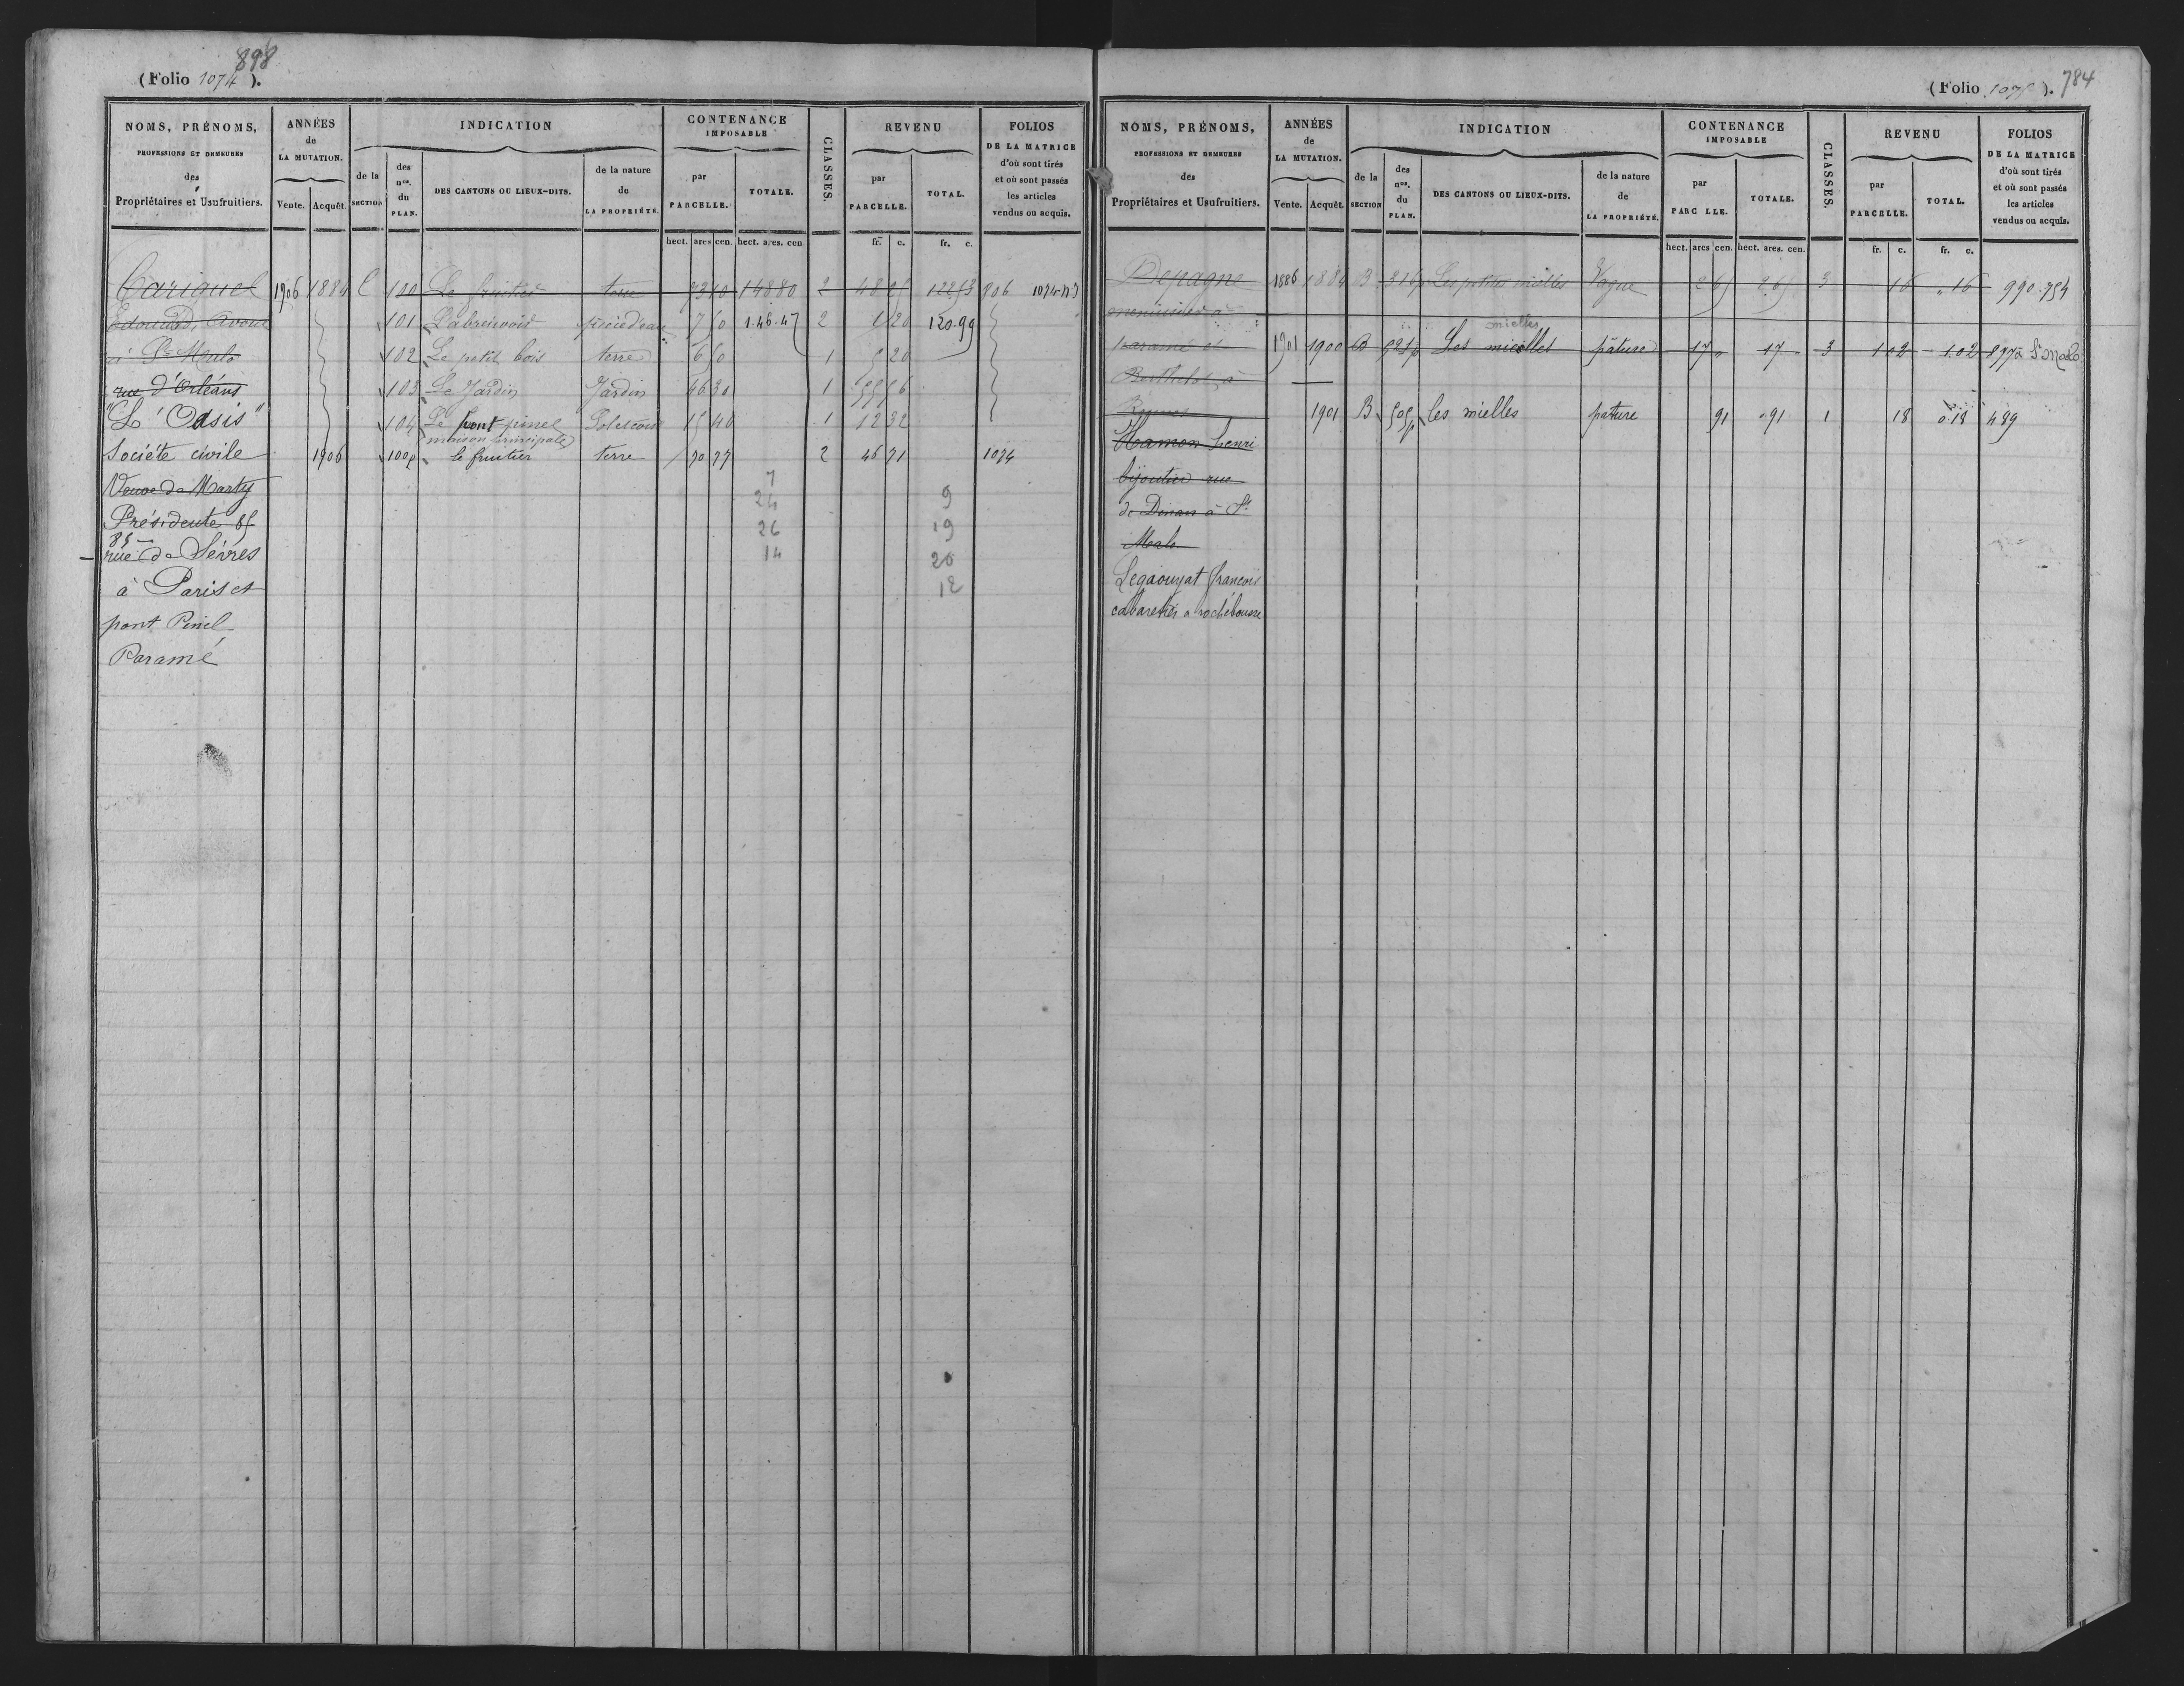 898
(Folio 1074).
NOMS, PRÉNOMS, PROFESSIONS ET DEMEURES des Propriétaires et Usufruitiers.
ANNÉES de LA MUTATION. Vente. Acquêt.
INDICATION de la SECTION des nos. du PLAN. DES CANTONS OU LIEUX-DITS. de la nature de LA PROPRIÉTÉ.
CONTENANCE IMPOSABLE par PARCELLE. TOTALE.
CLASSES.
REVENU par PARCELLE. TOTAL.
FOLIOS DE LA MATRICE d'où sont tirés et où sont passés les articles vendus ou acquis.
hect. ares cen. hect. ares. cen. fr. c. fr. c.
Cariguel 1906 1884 C 100 Le fruitier terre 73 10 14880 2 48 25 122.53 806 1074
Edouard, Avoué 101 L'abreuvoir pièce d'eau 7 50 1.46.47 2 1 20 120.99
à St Malo 102 Le petit bois terre 6 50 1 5 20
rue d'Orléans 103 Le Jardin Jardin 46 30 1 55 56
"L'Oasis" 104 Le pont pinel Sol et cour 15 40 1 12 32
(maison principale)
Société civile 1906 100p le fruitier terre 70 77 2 46 71 1074
Veuve de Marty 7
24 9
Présidente 85 26 19
85
rue de Sèvres 14 20
à Paris et 12
pont Pinel
Paramé
784
(Folio 1075).
NOMS, PRÉNOMS, PROFESSIONS ET DEMEURES des Propriétaires et Usufruitiers.
ANNÉES de LA MUTATION. Vente. Acquêt.
INDICATION de la SECTION des nos. du PLAN. DES CANTONS OU LIEUX-DITS. de la nature de LA PROPRIÉTÉ.
CONTENANCE IMPOSABLE par PARC LLE. TOTALE.
CLASSES.
REVENU par PARCELLE. TOTAL.
FOLIOS DE LA MATRICE d'où sont tirés et où sont passés les articles vendus ou acquis.
hect. ares cen. hect. ares. cen. fr. c. fr. c.
Depagne 1886 1884 B 316p Les petites mielles Vague 2 65 2.65 3 16 " 16 990.754
menuisier à
mielles
paramé et 1901 1900 B 521p Les mielles pâture 17 " 17 3 1 02 1.02 897 St Malo
Berthelot, à
Rennes 1901 B 505p les mielles pature 91 0.91 1 18 0.18 489
Hamon henri
bijoutier rue
de Dinan à St
Malo
Legaouyat François
cabaretier a rochebonne